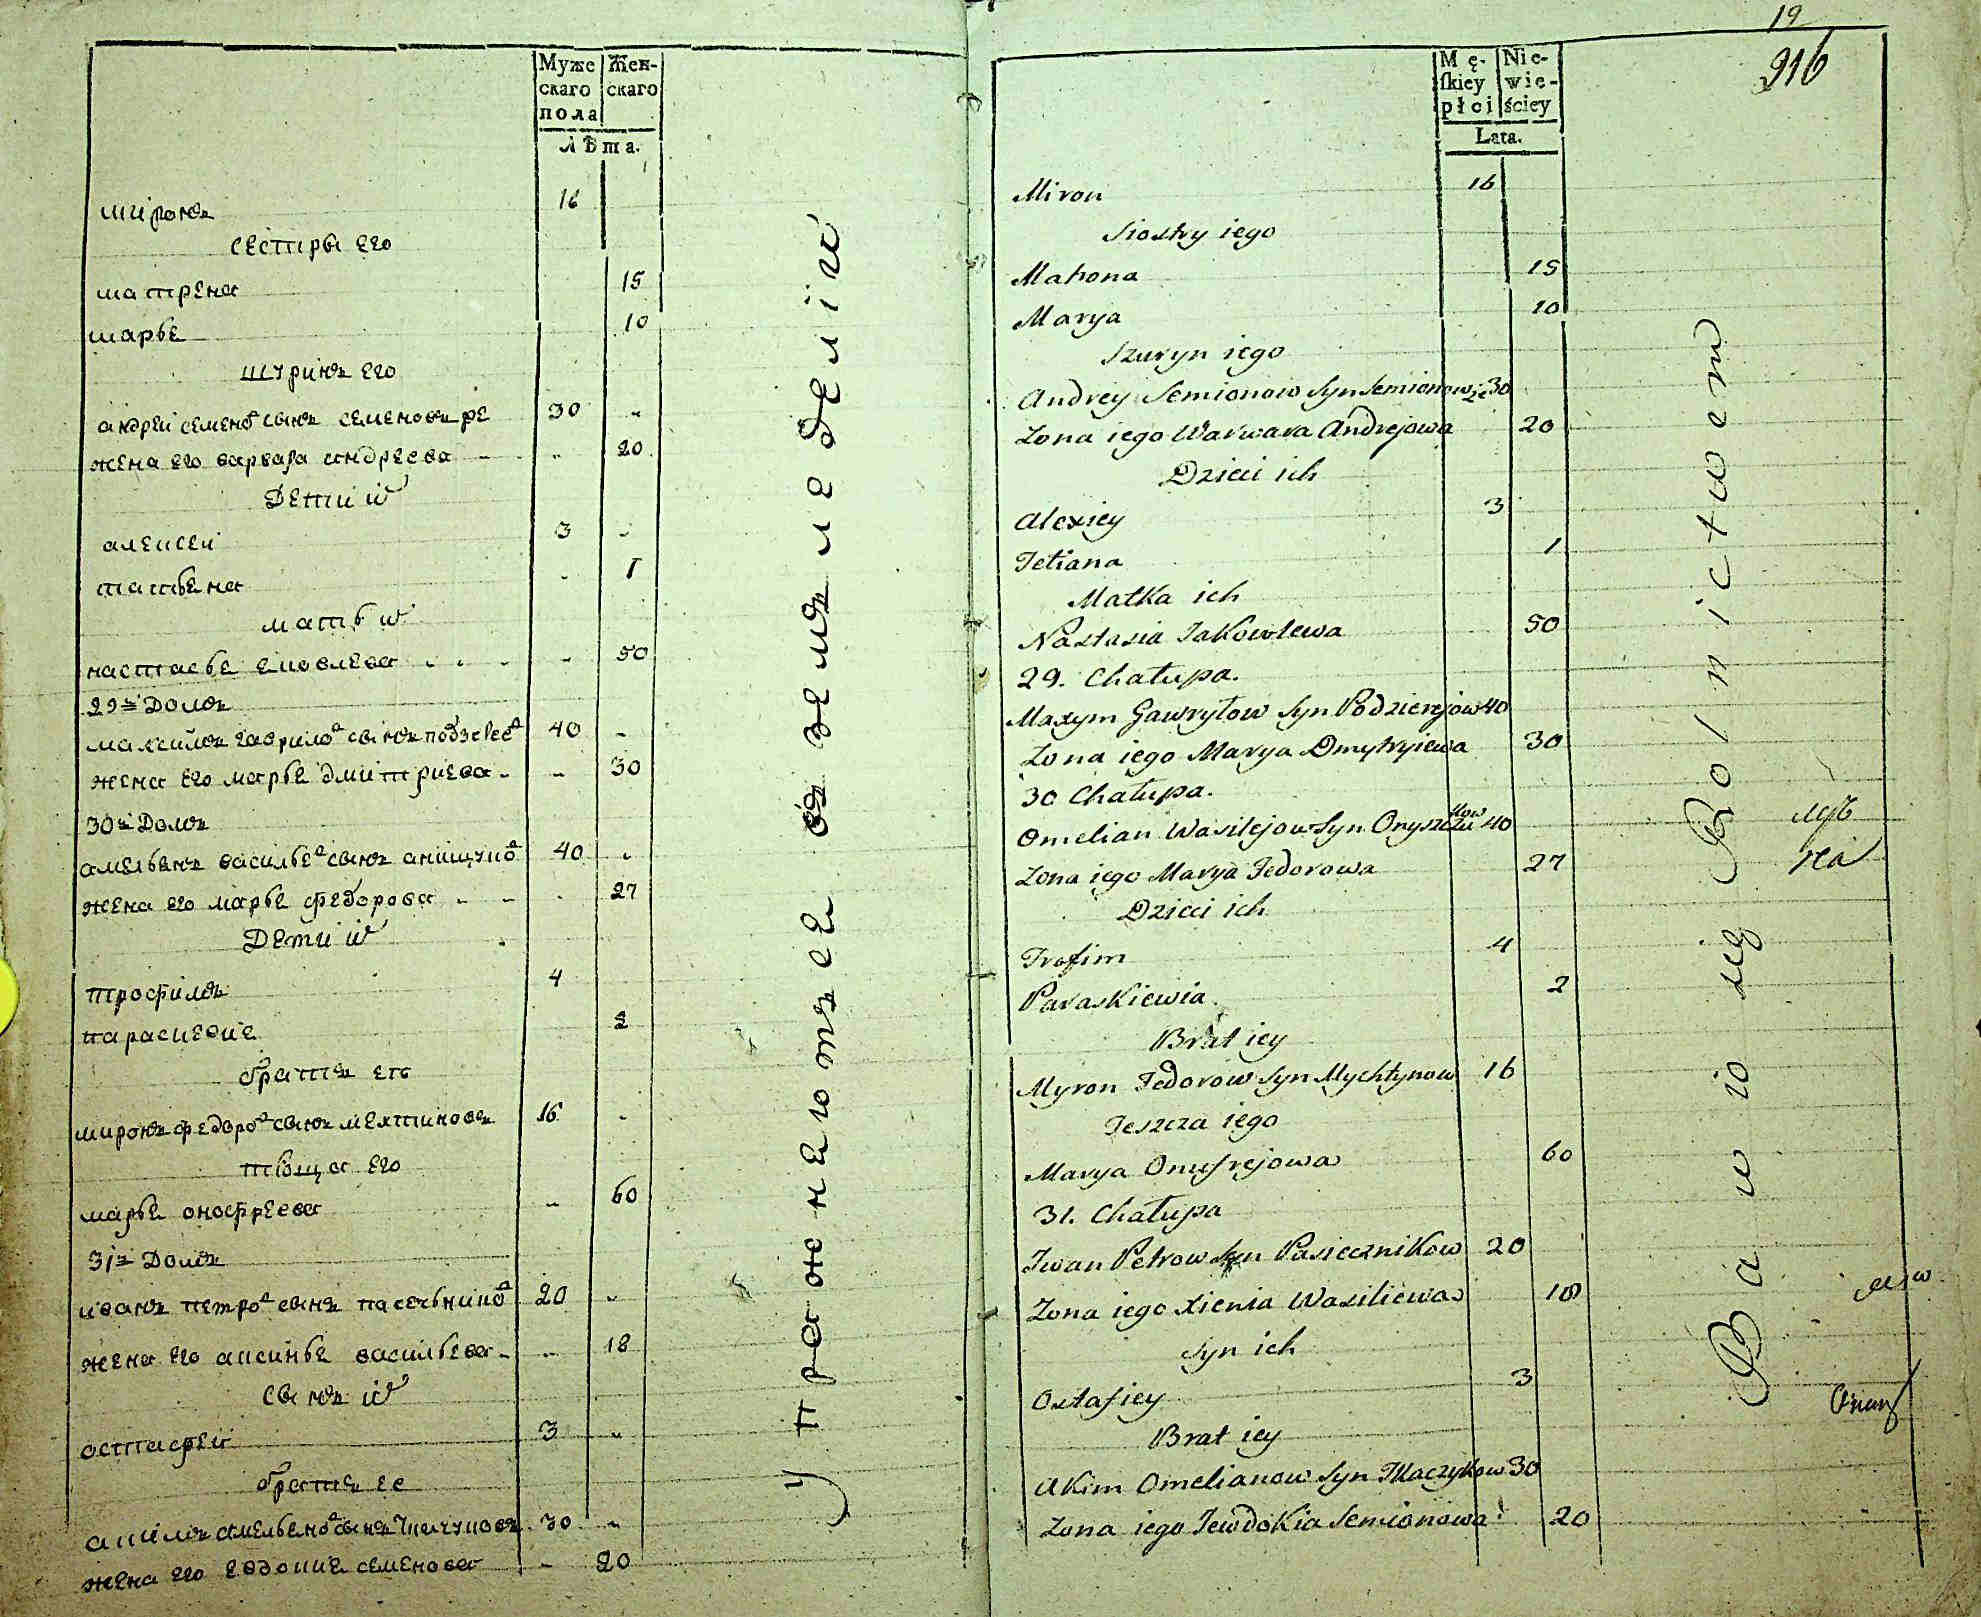 Муже
скаго
пола
Жен-
скаго
лѣта.
миронъ 16
сестры его
матрена 15
марье 10
шуринъ его
андрей семено сынъ семеновъ 30
жена его варвара андреева 20
Дети их
алексей 3
татьена 1
мать их
настасье ековлева 50
29й Домъ
максимъ гаврило сынъ 40
жена его марье дмитриева 30
30й Домъ
амельенъ василье сынъ 40
жена его марье федорова 27
Дети их
трофимъ 4
параскевие 2
братъ его
миронъ федоро сынъ мехтиновъ 16
тёща его
марье онофреева 60
31й Домъ
иванъ петро сынъ пасечнико 20
жена его аксинье васильева 18
сынъ их
остафей 3
братъ ее
акимъ амельено сынъ 30
жена его евдокие семенова 20
Упражнаютъсе въ земледеліи
19
916
Mę-
skiey
płci
Nie-
wie-
ściey
Lata.
Miron 16
Siostry iego
Matrona 15
Marya 10
Szuryn iego
Andrey Semionow Syn Semionow 30
Zona iego Warwara Andrejowa 20
Dzieci ich
Alexiey 3
Tetiana 1
Matka ich
Nastasia Jakowlewa 50
29. Chałupa.
Maxym Gawryłow Syn Podzierejow 40
Zona iego Marya Dmytryiewa 30
30 Chałupa.
Omelian Wasilejow Syn 40
Zona iego Marya Fedorowa 27
Dzieci ich
Trofim 4
Paraskiewia 2
Brat iey
Myron Fedorow Syn Mychtynow 16
Teszcza iego
Marya Onufrejowa 60
31. Chałupa
Iwan Petrow Syn Pasiecznikow 20
Zona iego Xienia Wasiliewa 18
Syn ich
Ostafiey 3
Brat iey
Akim Omelianow Syn Tkaczykow 30
Zona iego Jewdokia Semionowa 20
Bawio się Rolnictwem